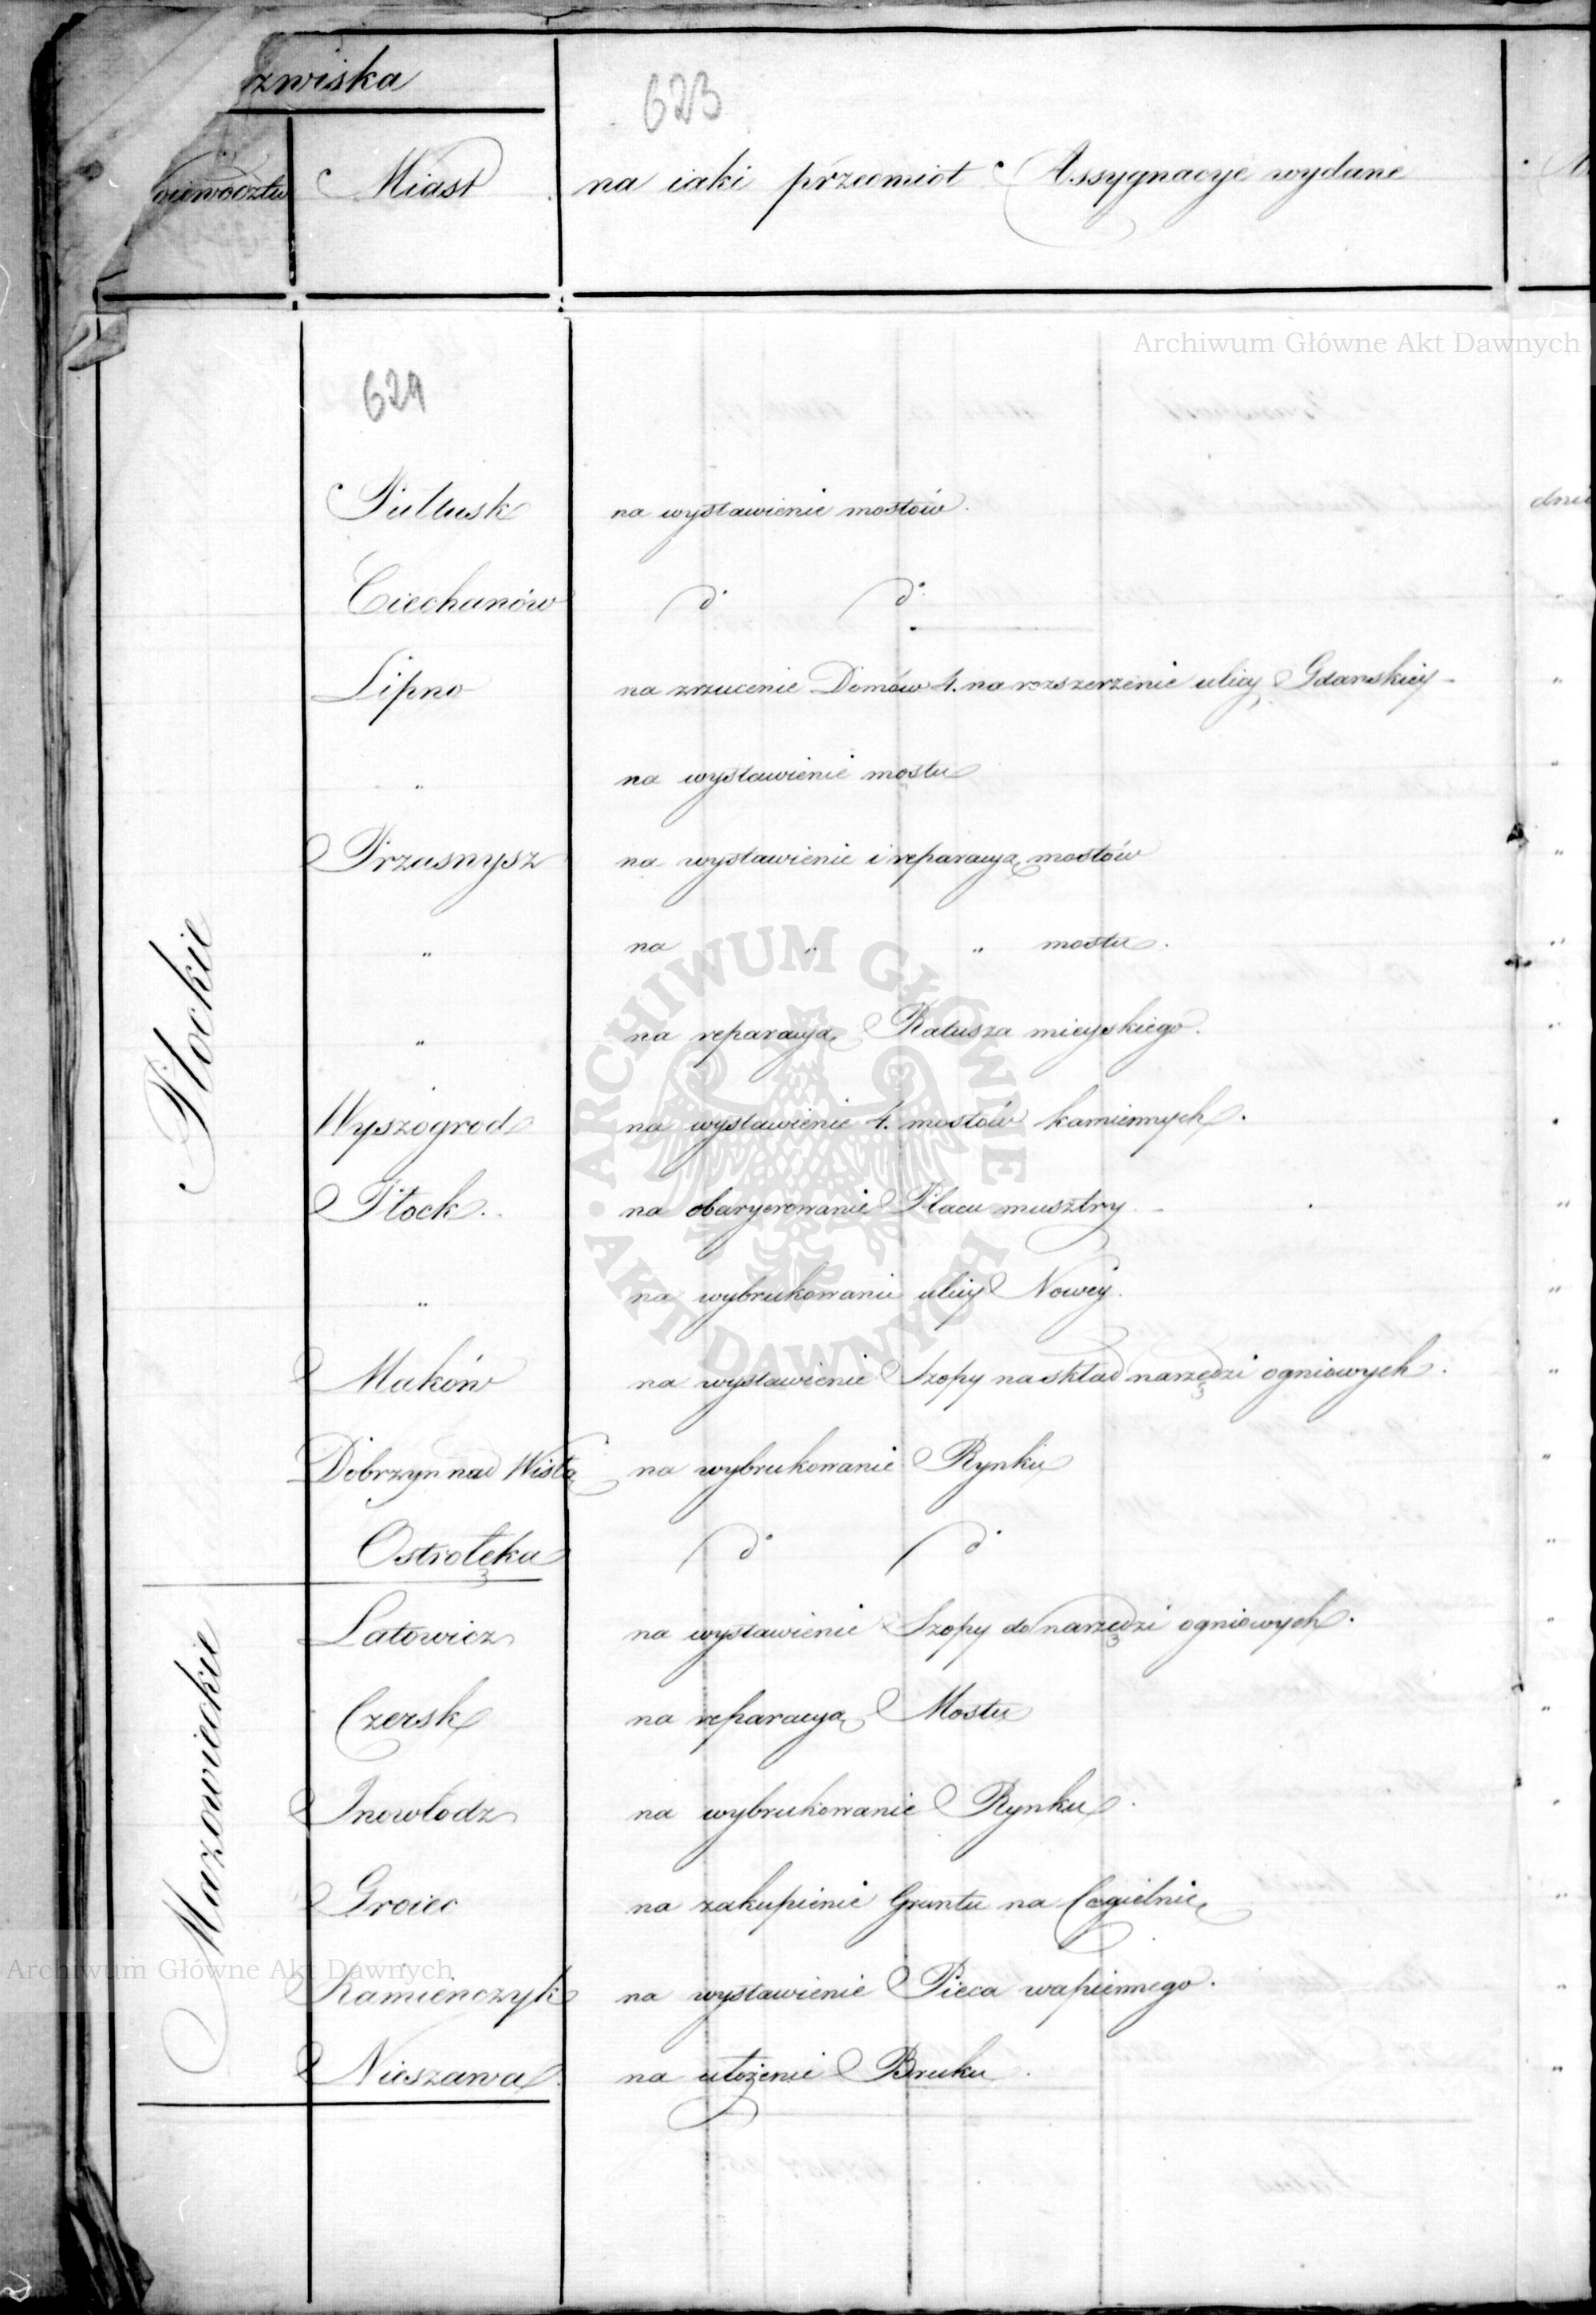 zwiska
623
Miast na iaki przedmiot Assygnacye wydane
Archiwum Główne Akt Dawnych
624
Pułtusk na wystawienie mostów. dnia
Ciechanów d° d°
Lipno na zrzucenie Domów 4. na rozszerzenie ulicy Gdanskiey -
" na wystawienie mostu "
Przasnysz na wystawienie i reparacyą mostów "
" na " " mostu. "
Płockie
" na reparacyą Ratusza mieyskiego. "
Wyszogrod na wystawienie 4. mostów kamiennych.
Płock. na obaryerowanie Placu musztry. "
" na wybrukowanie ulicy Nowey. "
Maków na wystawienie Szopy na skład narzędzi ogniowych. "
Dobrzyn nad Wisłą na wybrukowanie Rynku "
Ostrołęka d° d° "
Latowicz na wystawienie Szopy do narzędzi ogniowych. "
Czersk na reparacyą Mostu "
Mazowieckie
Inowłodz na wybrukowanie Rynku. "
Groiec na zakupienie Gruntu na Cegielnię "
Archiwum Główne Akt Dawnych
Kamienczyk na wystawienie Pieca wapiennego. "
Nieszawa na ułożenie Bruku. "
ARCHIWUM GŁÓWNE · AKT DAWNYCH ·